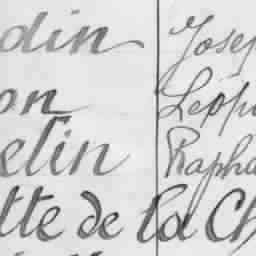 din Josep
on Léopo
elin Rapha
tte de la Ch